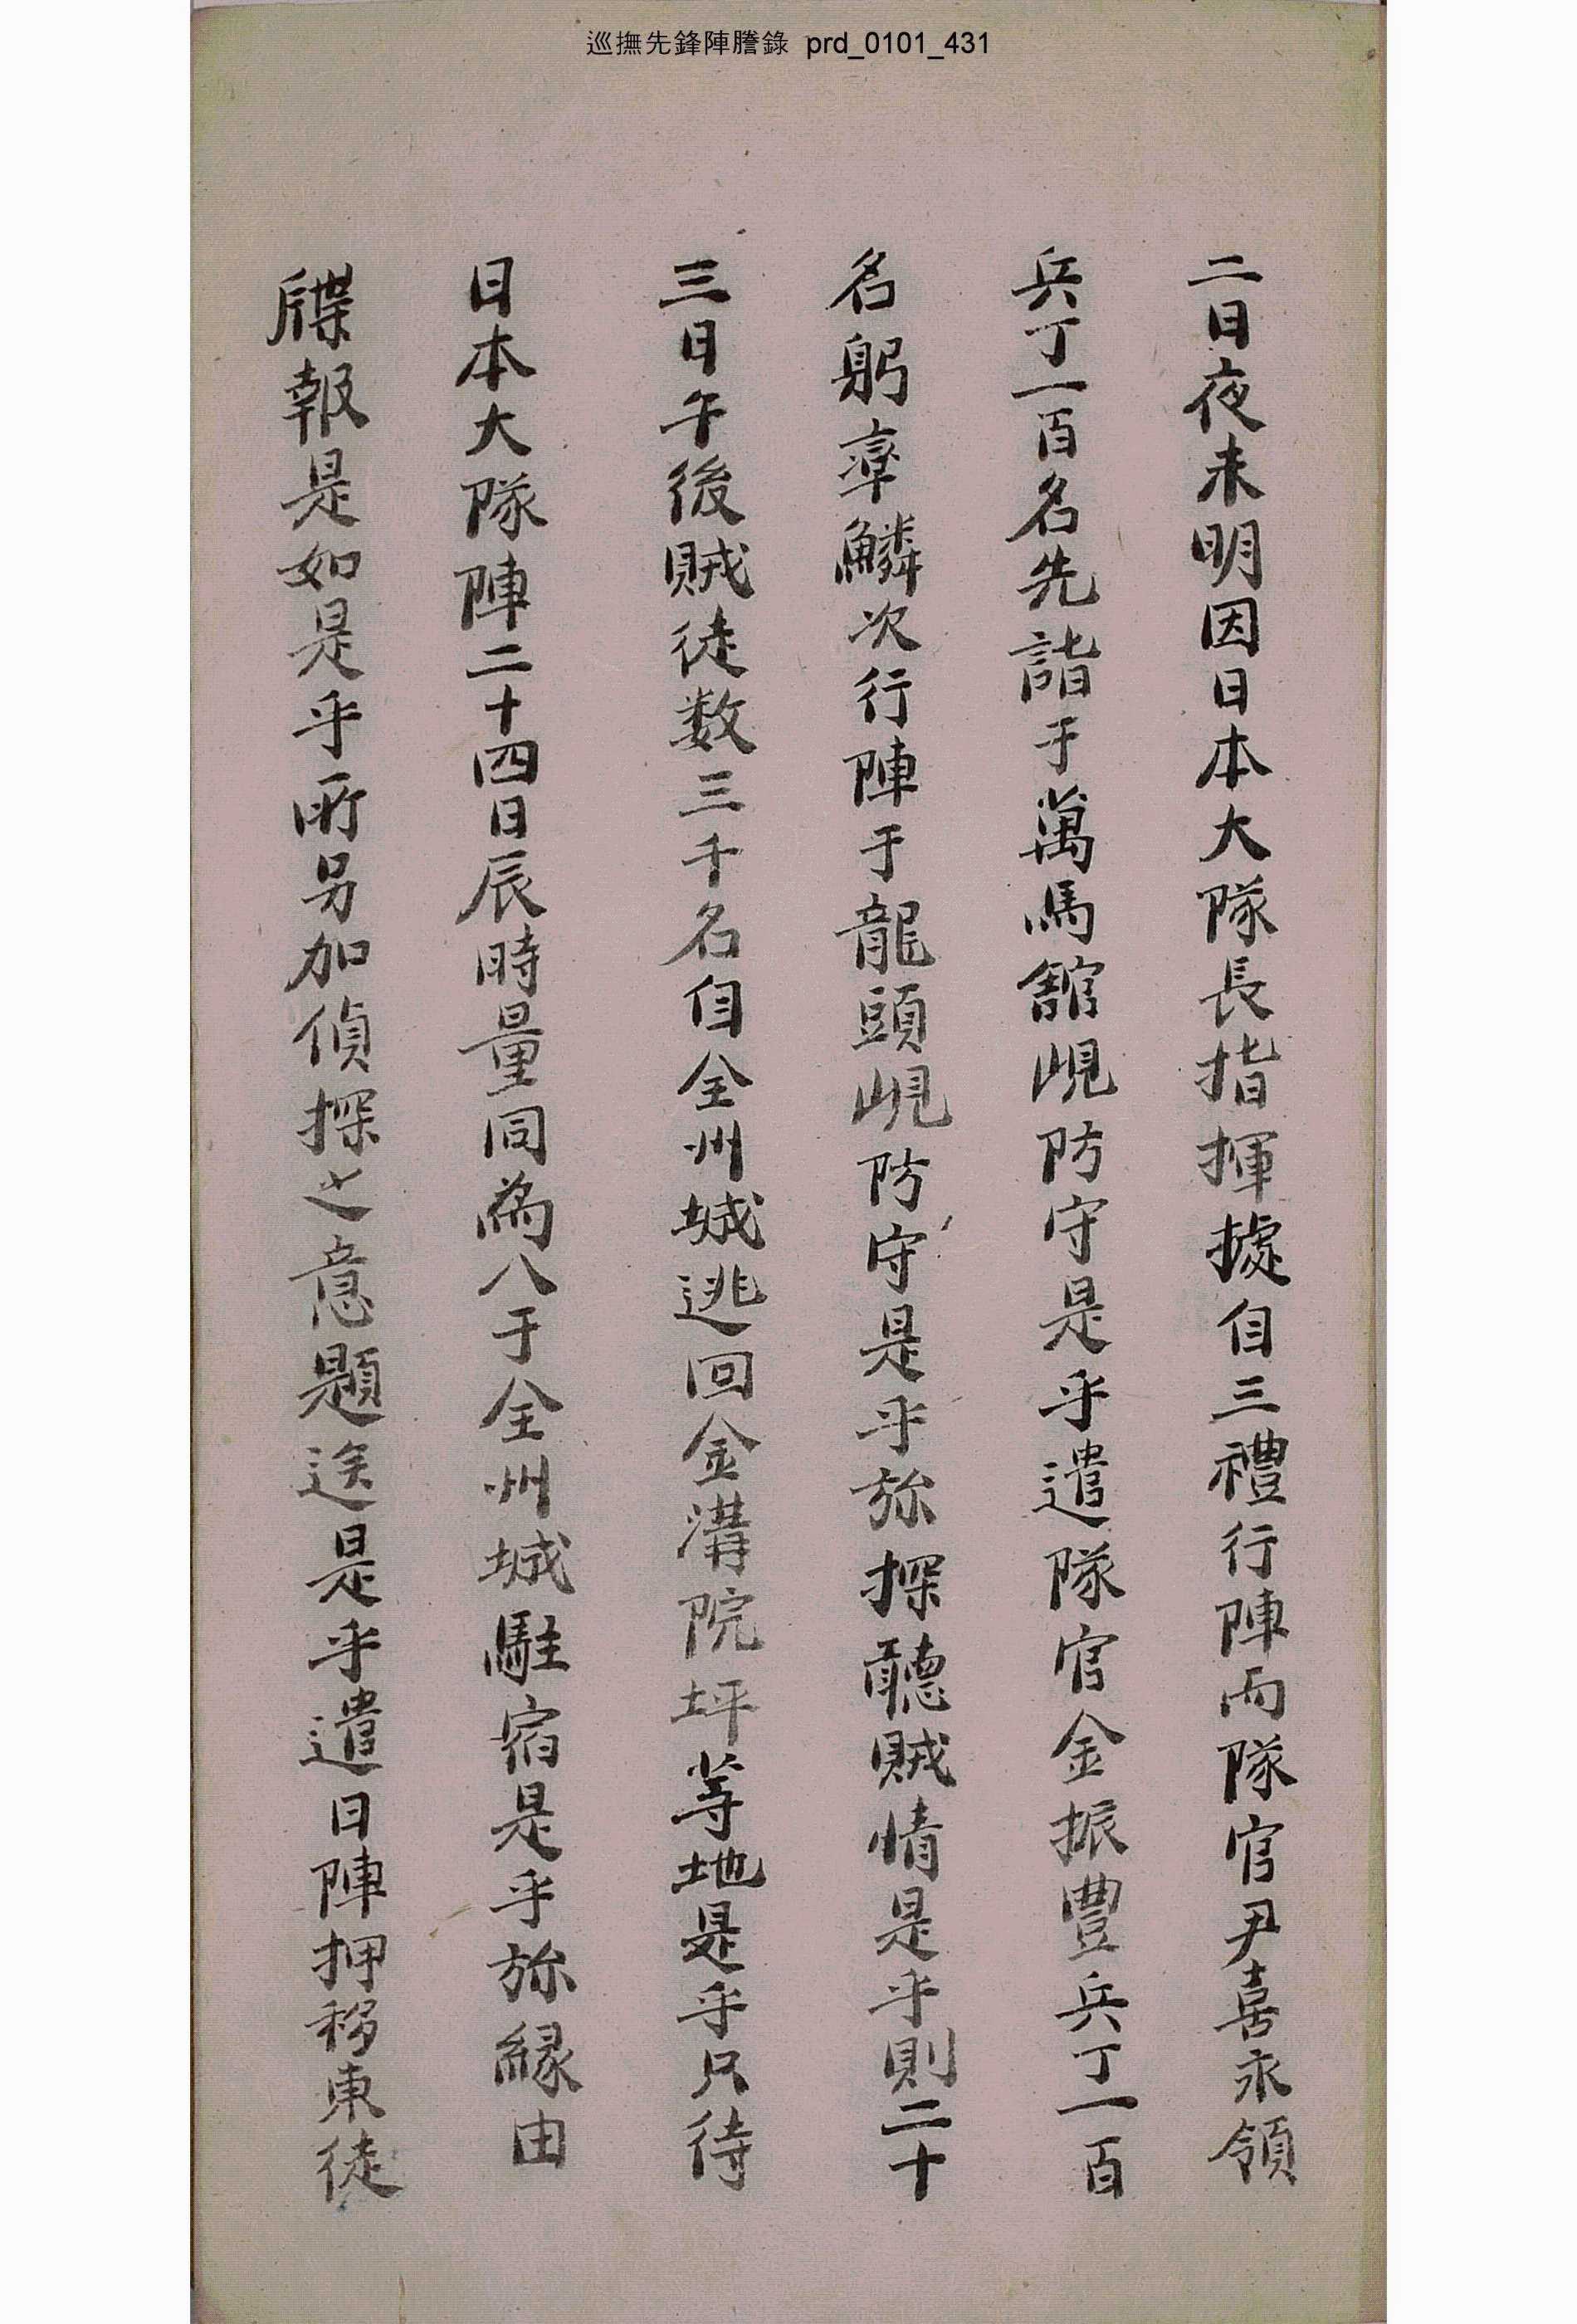 巡撫先鋒陣謄錄 prd_0101_431
二日夜未明因日本大隊長指揮據自三禮行陣而隊官尹喜永領
兵丁一百名先詣于萬馬舘峴防守是乎遣隊官金振豐兵丁一百
名躬率鱗次行陣于龍頭峴防守是乎旀探聽賊情是乎則二十
三日午後賊徒数三千名自全州城逃回金溝院坪等地是乎只待
日本大隊陣二十四日辰時量同爲入于全州城駐宿是乎旀緣由
牒報是如是乎所另加偵探之意題送是乎遣日陣押移東徒